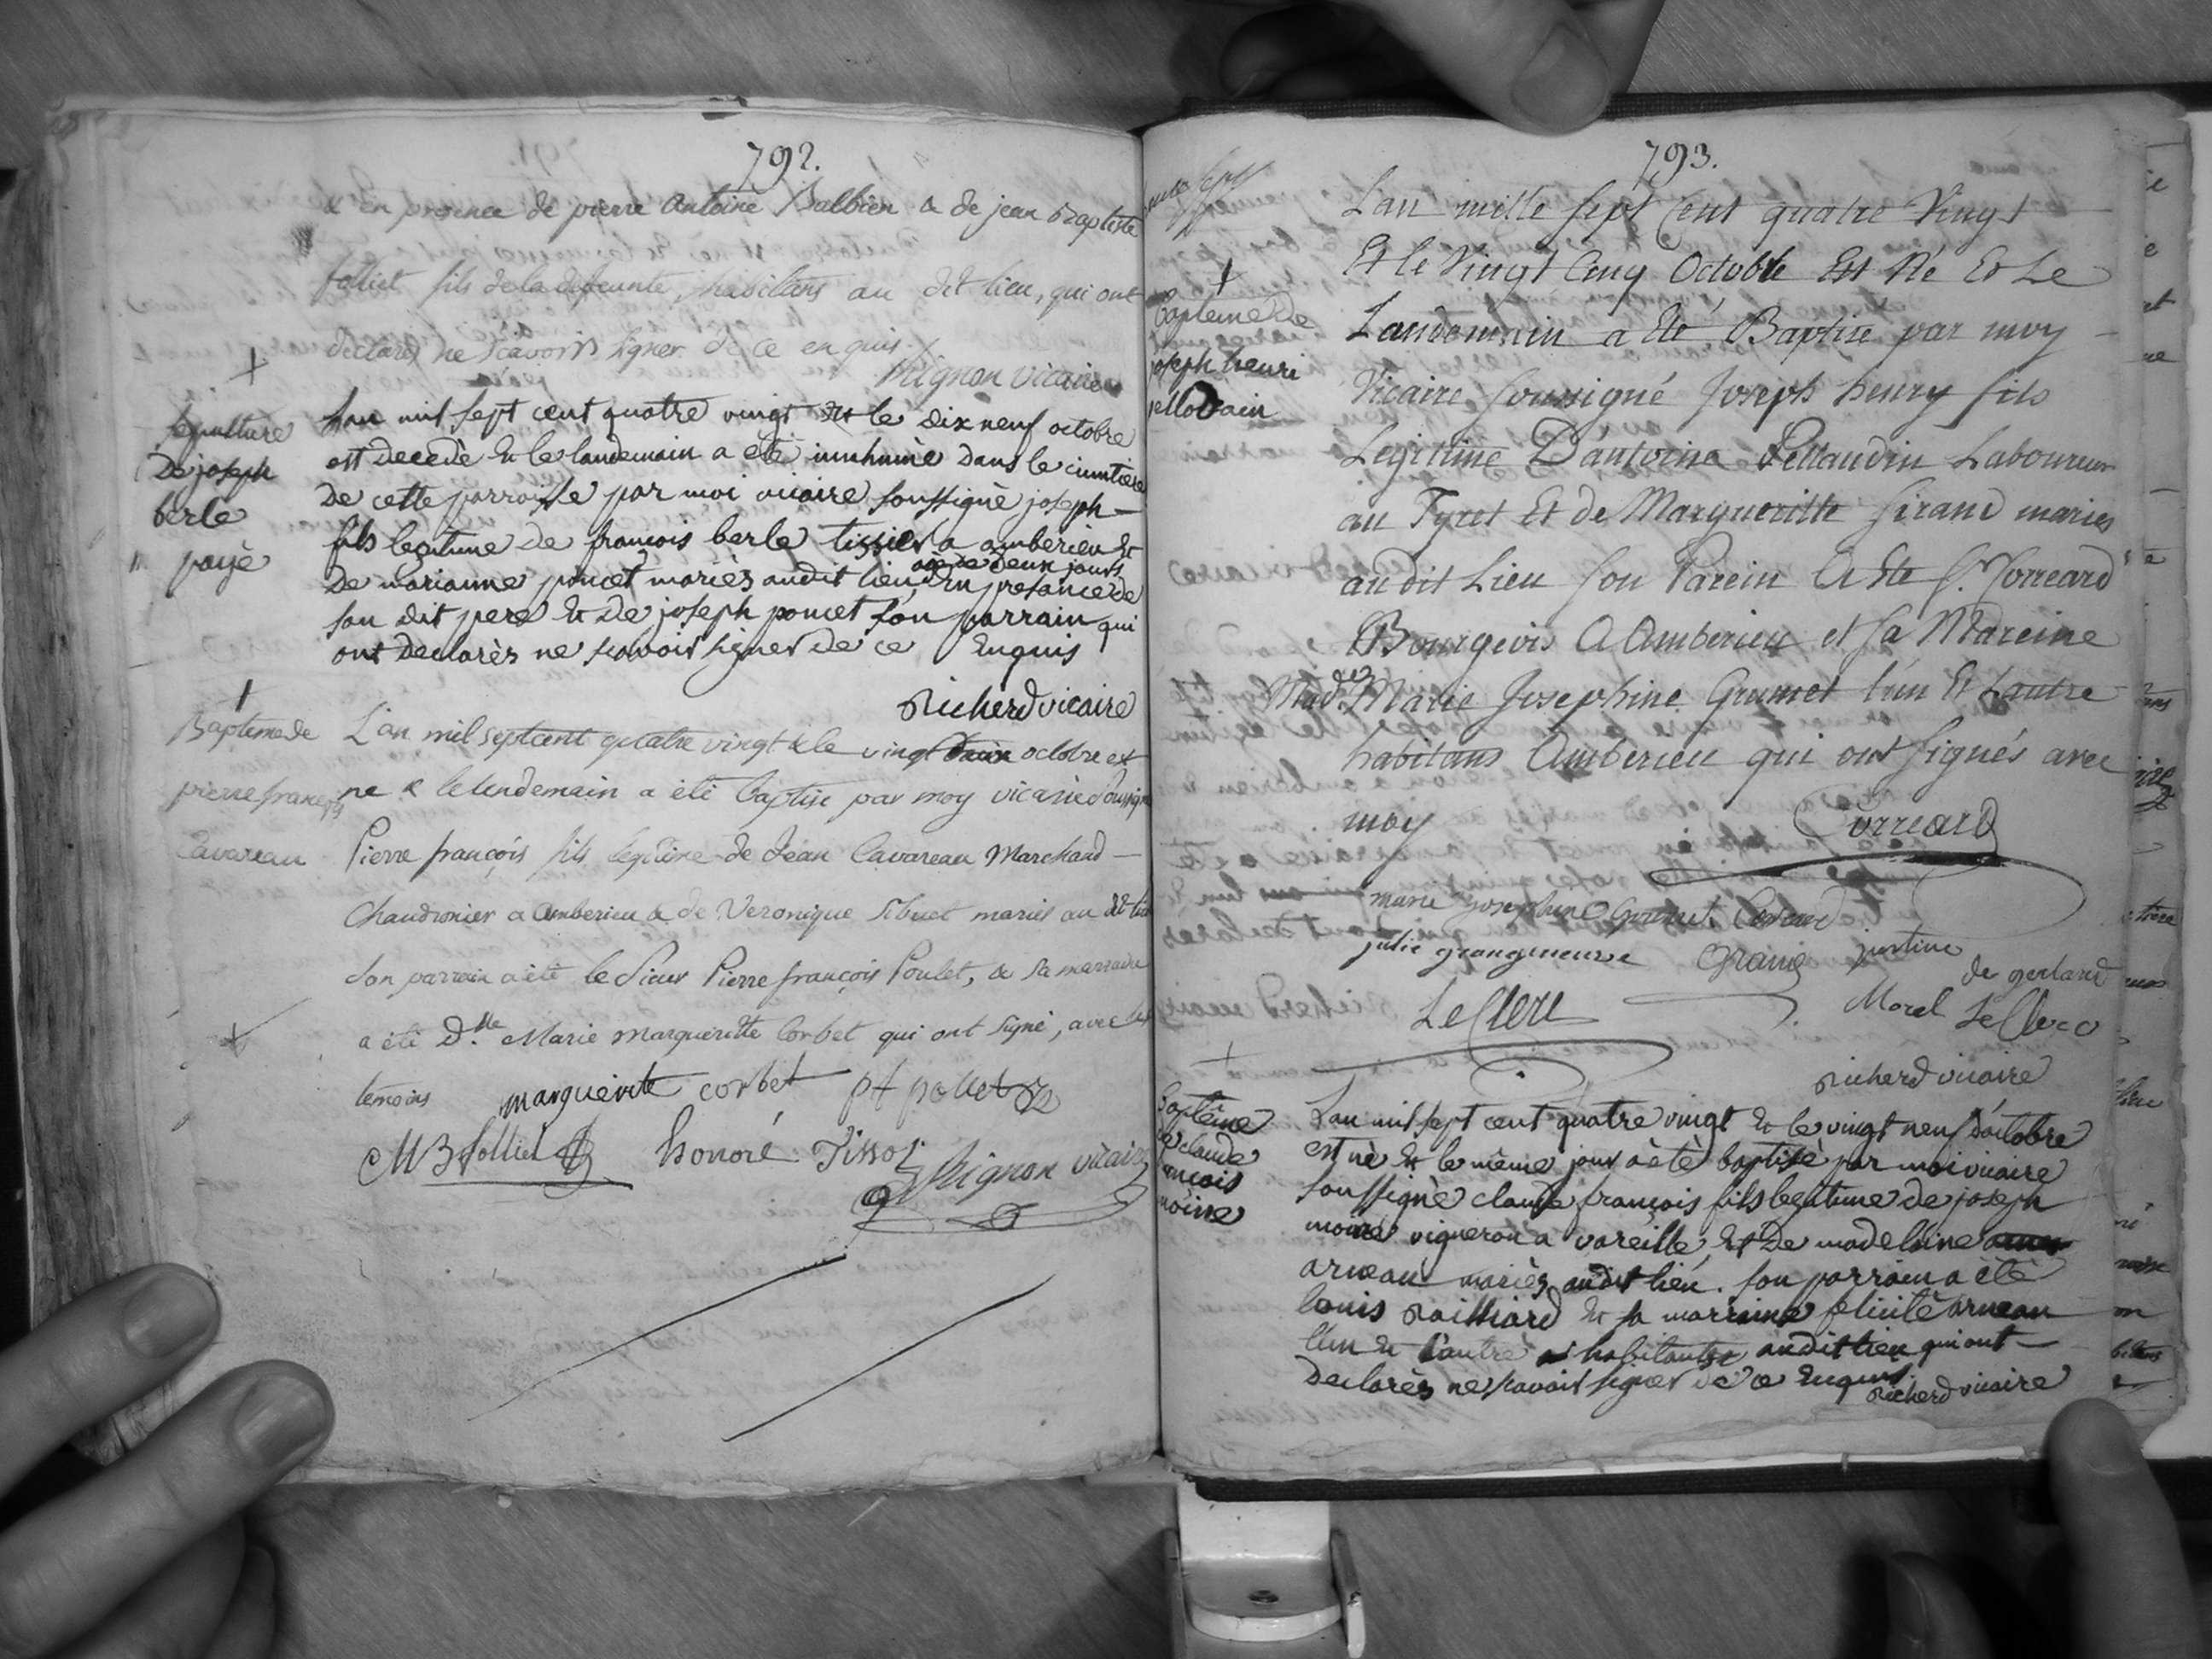 792.
& en presence de pierre Antoine Balbien & de jean Baptiste
folliet fils de la defeunte, habitans au dit lieu, qui ont
declarés ne scavoir signer de ce enquis.
Mignon vicaire
+
sepulture
De joseph
berle
payè
L'an mil sept cent quatre vingt et le dix neuf octobre
est decedè & le landemain a etè inuhumè dans le cimetiere
de cette parroisse par moi vicaire soussignè joseph
fils legitime de francois berle tissier a amberieu &
agè de deux jours
de marianne poncet mariès audit lieu, En presance de
son dit pere & de joseph poncet son parrain qui
ont declarès ne scavoir signer de ce Enquis
Richerd vicaire
+
Bapteme de
pierre françois
Cavareau
L'an mil sept cent quatre vingt & le vingt octobre est
ne & le lendemain a été baptisé par moy vicaire soussigné
Pierre françois fils legitime de Jean Cavareau Marchand
Chaudronier a Amberieu & de Veronique Sibuet mariés au dit lieu
son parrain a été le Sieur Pierre françois Poulet, & sa marraine
a été D.lle Marie Marguerite Corbet qui ont signé, avec les
temoins marguerite corbet pf pollet
MB folliet honoré Tissot Mignon vicaire
793.
+
Bapteme de
joseph henri
pellodain
L'an mille sept Cent quatre Vingt
Et le Vingt Cinq Octobre Est Né Et Le
Landemain a Eté Baptisé par moy
Vicaire Soussigné Joseph henry fils
Legitime D'antoine Pellaudin Laboureur
au Tyret Et de Margueritte Sirand mariés
au dit Lieu Son Parein A Ete S. Correard
Bourgeois A Amberieu et sa Mareine
Mad. Marie Josephine Grumet l'un Et Lautre
habitans Amberieu qui ont signés avec
moy Correard
marie josephine Grumet
julie grangeneuve justine
de gerland
LeClerc Morel LeClerc
Richerd vicaire
+
Baptême
de claude
francois
moine
L'an mil sept cent quatre vingt & le vingt neuf d'octobre
est nè & le même jour a ètè baptisè par moi vicaire
soussignè claude françois fils legitime de joseph
moine vigneron a vareille, Et De madeleine
arneau mariès audit lieu. son parrain a etè
louis Railliard & sa marraine felicitè arneau
l'un & l'autre habitants audit lieu qui ont
Declarès ne scavoir signer de ce Enquis
Richerd vicaire